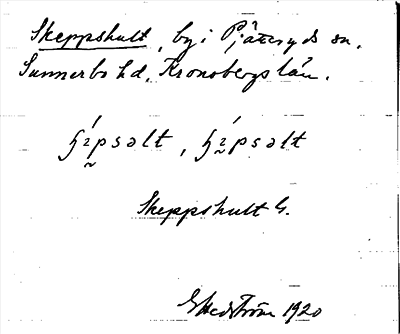 Skeppshult, by i Pjätteryds sn,
Sunnerbo hd, Kronobergs län.
Skeppshult G.
G Hedström 1920